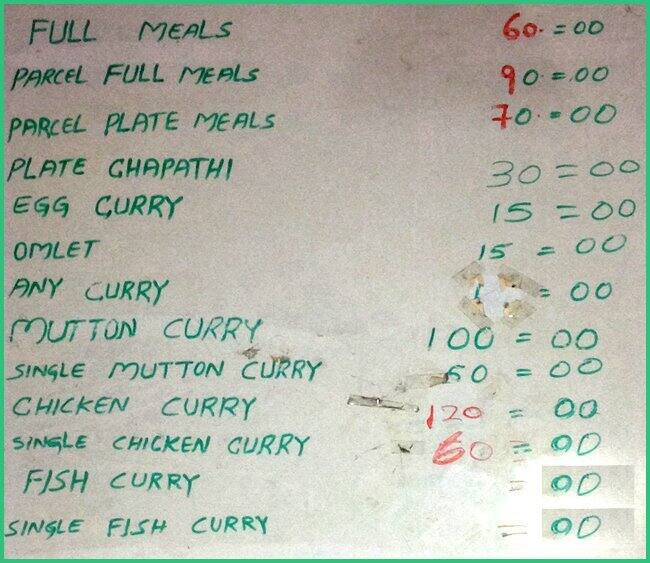 FULL MEALS 60.=00
PARCEL FULL MEALS 90.=.00
PARCEL PLATE MEALS 70.=00
PLATE CHAPATHI 30=00
EGG CURRY 15=00
OMLET 15=00
ANY CURRY =00
MUTTON CURRY 100=00
SINGLE MUTTON CURRY 60=00
CHICKEN CURRY 120=00
SINGLE CHICKEN CURRY 60=00
FISH CURRY =00
SINGLE FISH CURRY =00